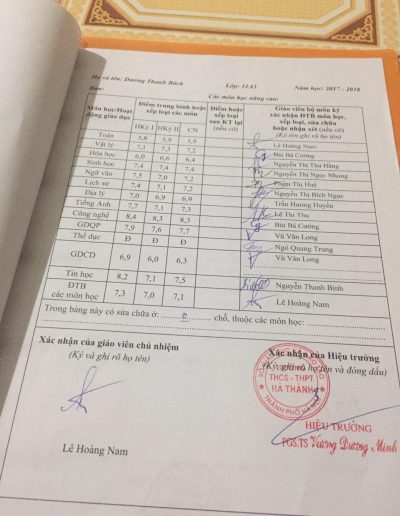 Họ và tên: Dương Thanh Bách Lớp: 11A3 Năm học: 2017 - 2018
Ban: Các môn học nâng cao:
Môn học/Hoạt động giáo dục | Điểm trung bình hoặc xếp loại các môn | Điểm hoặc xếp loại sau KT lại (nếu có) | Giáo viên bộ môn ký xác nhận ĐTB môn học, xếp loại, sửa chữa hoặc nhận xét (nếu có) (Ký tên ghi rõ họ tên)
HKỳ I | HKỳ II | CN
Toán 5,8 5,9 5,9 Lê Hoàng Nam
Vật lý 7,1 7,3 7,2 Bùi Bá Cường
Hóa học 6,0 6,6 6,4 Nguyễn Thị Thu Hằng
Sinh học 7,4 7,4 7,4 Nguyễn Thị Ngọc Nhung
Ngữ văn 7,5 7,0 7,2 Phạm Thị Huê
Lịch sử 7,4 7,1 7,2 Nguyễn Thị Bích Ngọc
Địa lý 7,0 6,9 6,9 Trần Hương Huyền
Tiếng Anh 7,7 7,1 7,3 Lê Thị Thu
Công nghệ 8,4 8,3 8,3 Bùi Bá Cường
GDQP 7,9 7,6 7,7 Vũ Văn Long
Thể dục Đ Đ Đ Ngô Quang Trung
GDCD 6,9 6,0 6,3 Vũ Văn Long
Tin học 8,2 7,1 7,5 Nguyễn Thanh Bình
ĐTB các môn học 7,3 7,0 7,1 Lê Hoàng Nam
Trong bảng này có sửa chữa ở: 0 chỗ, thuộc các môn học:
Xác nhận của giáo viên chủ nhiệm
(Ký và ghi rõ họ tên)
Xác nhận của Hiệu trưởng
(Ký, ghi rõ họ tên và đóng dấu)
THCS - THPT
HÀ THÀNH
THÀNH PHỐ HÀ NỘI
HIỆU TRƯỞNG
PGS.TS Vương Dương Minh
Lê Hoàng Nam